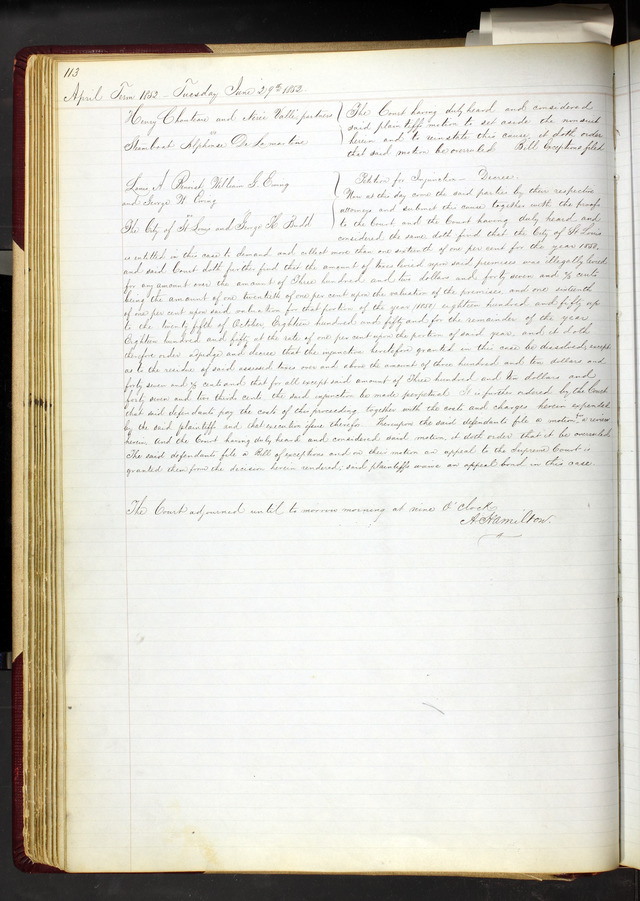 113
April Term 1852 - Tuesday June 29th 1852
Henry Chouteau and Neree Valle partners
vs
Steamboat Alphonse De Lamartine
The Court having duly heard and considered
said plaintiffs motion to set aside the nonsuit
herein and to reinstate this cause, it doth order
that said motion be overruled. Bill Exceptions filed
Louis A. Benoist, William G. Ewing
and George W. Ewing
vs
The City of St Louis and George K. Budd
Petition for Injunction - Decree.
Now at this day come the said parties by their respective
attorneys and submit this cause together with the proofs
to the Court and the Court having duly heard and
considered the same doth find that the City of St Louis
is entitled in this case to demand and collect more than one sixteenth of one per cent for the year 1850,
and said Court doth further find that the amount of taxes levied upon said premises was illegally levied
for any amount over the amount of Three hundred and two dollars and forty seven and 2/3 cents
being the amount of one twentieth of one per cent upon the valuation of the premises and one sixteenth
of one per cent upon said valuation for that portion of the year (1850) eighteen hundred and fifty up
to the twenty fifth of October, Eighteen hundred and fifty and for the remainder of the year
Eighteen hundred and fifty at the rate of one per cent upon the portion of said year, and it doth
therefore order adjudge and decree that the injunction heretofore granted in this case be dissolved, except
as to the residue of said assessed taxes over and above the amount of three hundred and two dollars and
forty seven and 2/3 cents and that for all except said amount of Three hundred and two dollars and
forty seven and two thirds cents the said injunction be made perpetual. It is further ordered by the Court
that said defendants pay the costs of this proceeding together with the costs and charges herein expended
by the said plaintiffs and that execution issue therefor. Thereupon the said defendants file a motion for a review
herein and the Court having duly heard and considered said motion it doth order that it be overruled
The said defendants file a Bill of exceptions and on their motion an appeal to the Supreme Court is
granted them from the decision herein rendered; said plaintiffs waive an appeal bond in this case.
The Court adjourned until to morrow morning at nine O'Clock
A. Hamilton.